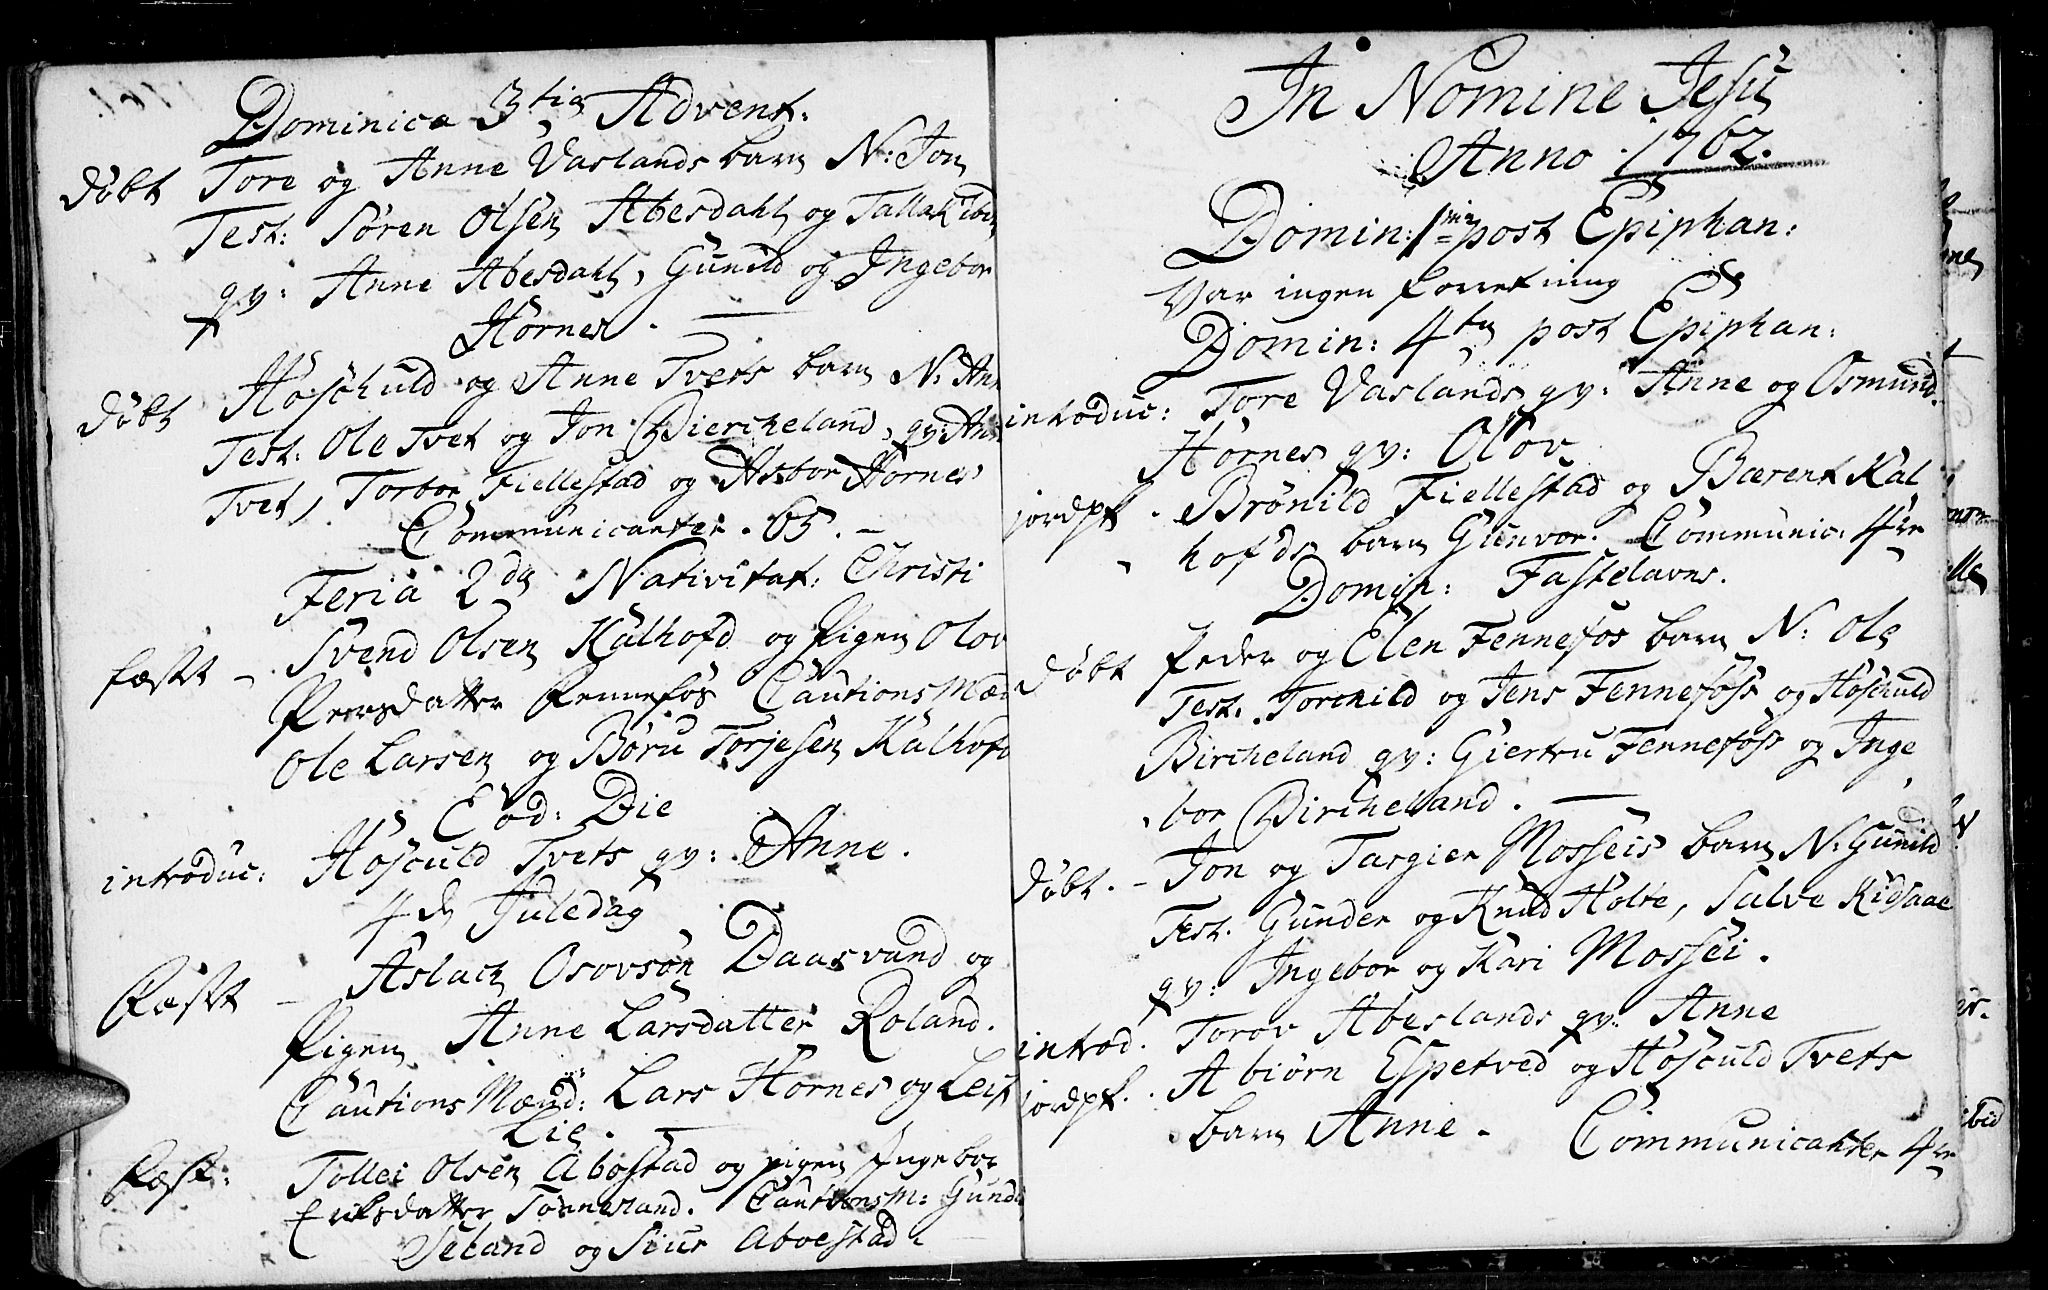 Dominica 3tia Advent:
Døbt Tore og Anne Vaslands barn N: Jon
Test: Søren Olsen Abesdahl og Tallak ibid
qv: Anne Abesdahl, Gunild og Ingebor
Hornes.
Døbt Høschuld og Anne Tvets barn N: An
Test: Ole Tvet og Jon Biercheland, qv: An
Tvet, Torbor Fiellestad og Asbor Hornes
Communicanter. 65.
Feria 2da Nativitat: Christi
fæstt - Svend Olsen Kalhofd og Pigen Olov
Peersdatter Fennefos Cautions Mæn
Ole Larsen og Børu Torjesen Kalhofd
Eod: Die
introduc: Høsculd Tvets qv: Anne.
4de Juledag
Fæstt - Aslach Osovsøn Daasvand og
Pigen Anne Larsdatter Roland.
Cautions Mænd: Lars Hornes og Leif
Lie.
Fæst: Tollei Olsen Abostad og pigen Ingebor
Eriksdatter Tønnesland. Cautions M: Gund
Seland og Siur Aboestad
In Nomine Jesu
Anno 1762.
Domin: 1ma post Epiphan:
Var ingen forretning
Domin: 4ta post Epiphan:
introduc: Tore Vaslands qv: Anne og Osmund
Hornes qv: Olov
jordpf. Brønild Fiellestad og Bærent Kal
hofds barn Gunvor. Communic: 4re
Domin: Fastelavns.
Døbt Peder og Elen Fennefos barn N: Ole
Test: Torchild og Jens Fennefoss og Høschuld
Bircheland qv: Giertru Fennefoss og Inge
bor Bircheland.
Døbt. - Jon og Targier Mosseis barn N: Gunild
Test. Gunder og Knud Holte, Salve Kidsaae
qv: Ingebor og Kari Mossei.
introd. Torov Abeslands qv: Anne
jordpf. Abiørn Espetved og Høsculd Tvets
barn Anne. Communicanter 4re